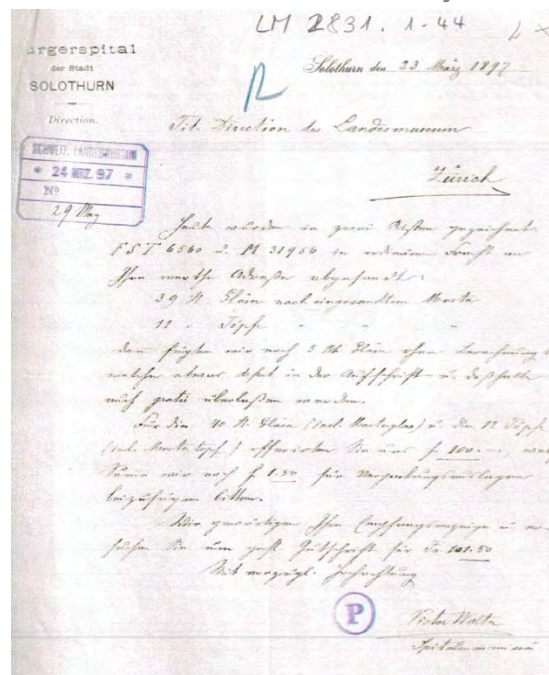 LM 2831. 1-44
ürgerspital
der Stadt
SOLOTHURN
Direction.
Solothurn den 23 März 1897
Tit. Direction des Landesmuseum
Zürich
SCHWEIZ. LANDESMUSEUM
* 24 MRZ. 97 *
No
29 May
Heute wurden in zwei Kisten gezeichnet
F S T 6560 u. M 31950 in ordinärer Fracht an
Ihre werthe Adresse abgesandt:
39 St. Gläser nach eingesandtem Muster
12 " Töpfe " " "
dann fügten wir noch 5 St. Gläser ohne Berechnung
welche etwas defekt in der Aufschrift u. deßhalb
auch gratis überlaßen werden.
Für die 40 St. Gläser (incl. Musterglas) u. die 12 Töpfe
(incl. Mustertopf) offerirten Sie uns f. 100.-
Summe wir noch f. 1.50 für Verpackungsauslagen
beizufügen bitten.
Wir gewärtigen Ihre Empfangsanzeige u.
suchen Sie um gefl. Gutschrift für Fr 101.50
Mit vorzügl. Hochachtung
P
Victor Walter